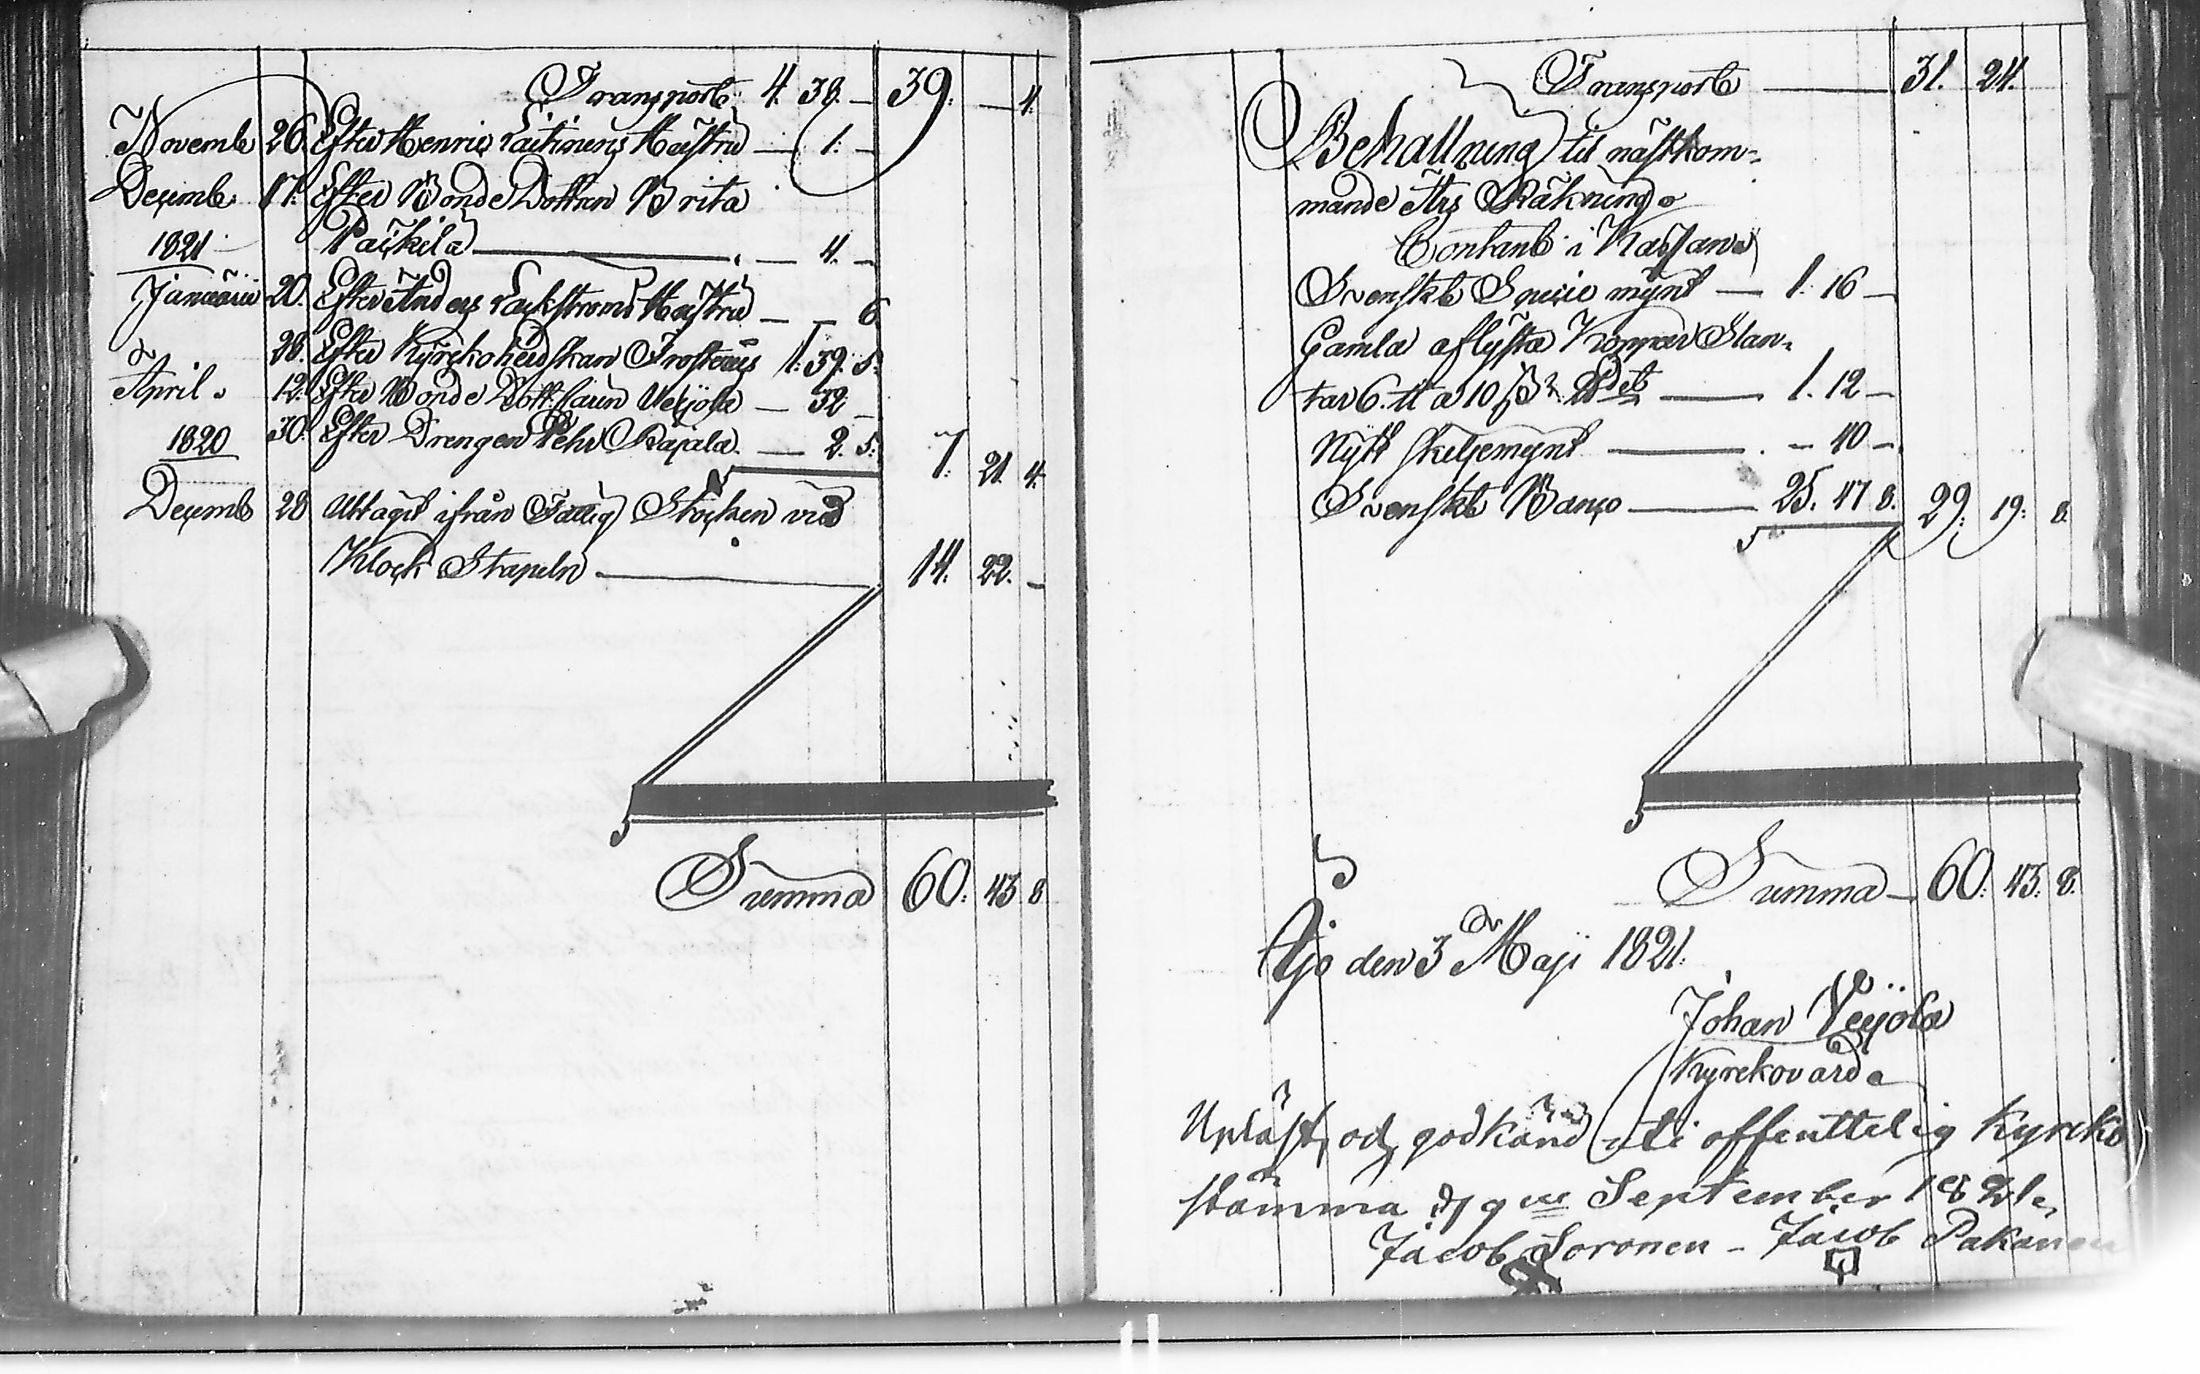 Transport 4. 38. — 39: — 4.
Novemb 26. Efter Henric Laitinens Hustru — 1: —
Decemb. 17. Efter Bonde Dottren Brita
1821 Packila — 4. —
Januarii 20. Efter Anders Lackströms Hustru — — 6
28. Efter Kyrckoherdskan Frosterus 1: 39. 5.
April. 12. Efter Bonde Dott. Carin Veijola — 32 —
1820 30. Efter Drengen Pehr Rajala — 2. 5. 7: 21. 4.
Decemb 28 Uttagit ifrån Fattig Stocken vid
Klock Stapeln — 14. 22. —
Summa 60: 43 8
Transport — 31. 24.
Behållning til nästkom-
mande Års Räkning
Contant i Kassan
Svenskt Specie mynt — 1. 16 —
Gamla aflysta Koppar Slan-
tar 6. ℔ a 10 ß — 1. 12 —
Nytt skiljemynt — — 40 —
Svenskt Banco — 25. 47 8. 29: 19: 8
Summa — 60: 43. 8.
Ijo den 3 Maji 1821.
Johan Veijola
Kyrckovärd
Upläst och godkänd uti offenttelig Kyrko
stämma d 9de September 1821.
Jacob Soronen – Jacob Pakanen